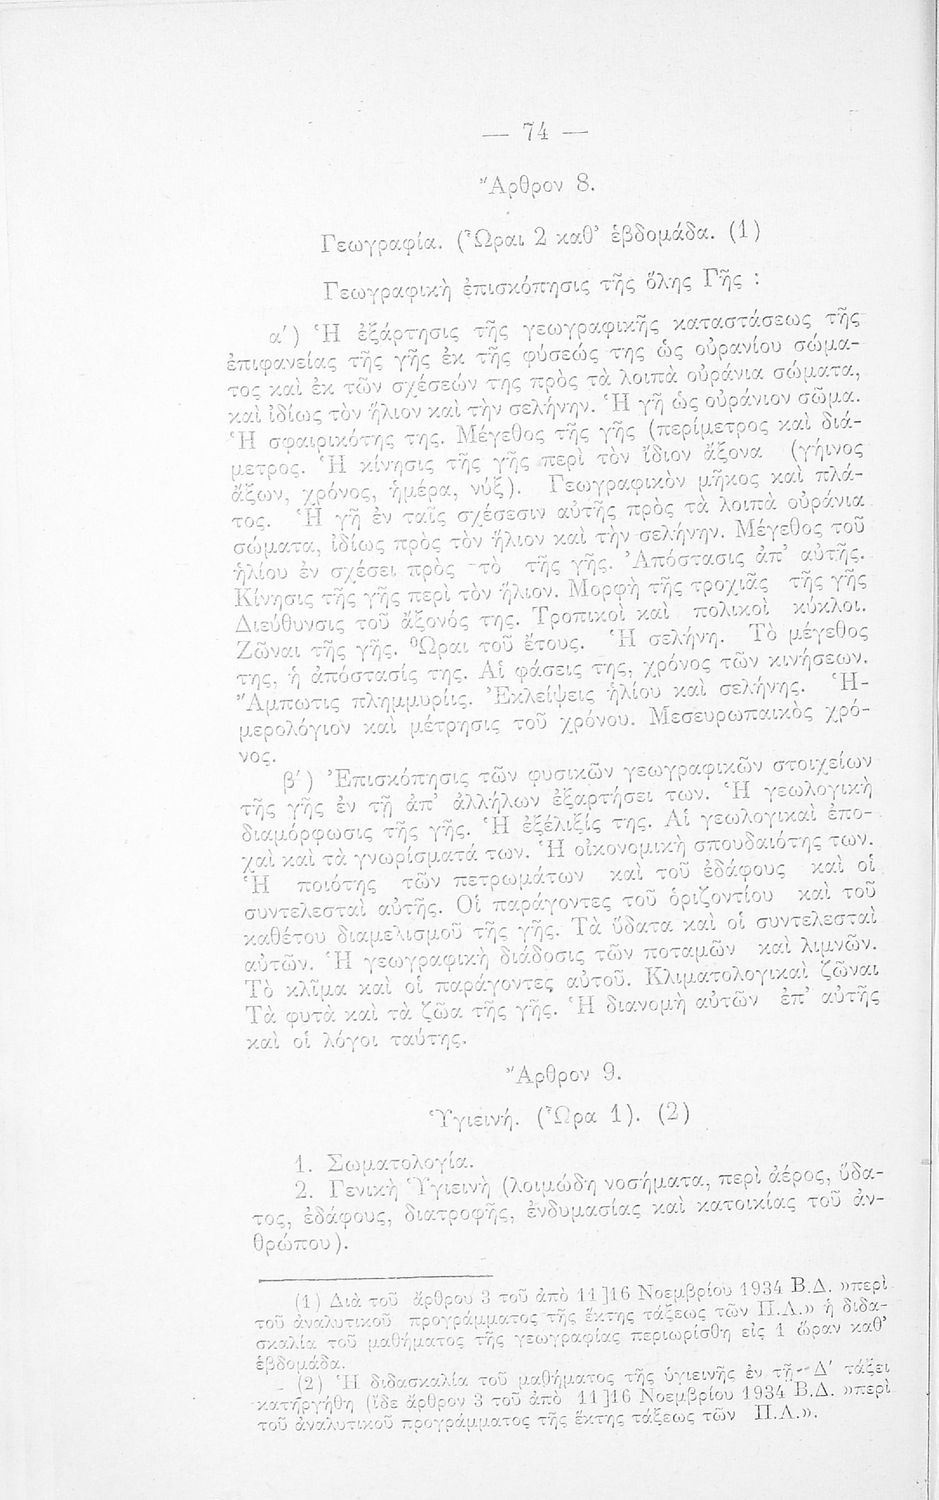 — 74 —
Ἄρθρον 8.
Γεωγραφία. (Ὧραι 2 καθ’ ἑβδομάδα. (1)
Γεωγραφικὴ ἐπισκόπησις τῆς ὅλης Γῆς :
α′) Ἡ ἐξάρτησις τῆς γεωγραφικῆς καταστάσεως τῆς
ἐπιφανείας τῆς γῆς ἐκ τῆς φύσεώς της ὡς οὐρανίου σώμα-
τος καὶ ἐκ τῶν σχέσεών της πρὸς τὰ λοιπὰ οὐράνια σώματα,
καὶ ἰδίως τὸν ἥλιον καὶ τὴν σελήνην. Ἡ γῆ ὡς οὐράνιον σῶμα.
Ἡ σφαιρικότης της. Μέγεθος τῆς γῆς (περίμετρος καὶ διά-
μετρος. Ἡ κίνησις τῆς γῆς περὶ τὸν ἴδιον ἄξονα (γήινος
ἄξων, χρόνος, ἡμέρα, νύξ). Γεωγραφικὸν μῆκος καὶ πλά-
τος. Ἡ γῆ ἐν ταῖς σχέσεσιν αὐτῆς πρὸς τὰ λοιπὰ οὐράνια
σώματα, ἰδίως πρὸς τὸν ἥλιον καὶ τὴν σελήνην. Μέγεθος τοῦ
ἡλίου ἐν σχέσει πρὸς τὸ τῆς γῆς. Ἀπόστασις ἀπ’ αὐτῆς.
Κίνησις τῆς γῆς περὶ τὸν ἥλιον. Μορφὴ τῆς τροχιᾶς τῆς γῆς
Διεύθυνσις τοῦ ἄξονός της. Τροπικοὶ καὶ πολικοὶ κύκλοι.
Ζῶναι τῆς γῆς. Ὧραι τοῦ ἔτους. Ἡ σελήνη. Τὸ μέγεθος
της, ἡ ἀπόστασίς της. Αἱ φάσεις της, χρόνος τῶν κινήσεων.
Ἄμπωτις πλημμυρίις. Ἐκλείψεις ἡλίου καὶ σελήνης. Ἡ-
μερολόγιον καὶ μέτρησις τοῦ χρόνου. Μεσευρωπαικὸς χρό-
νος.
β′) Ἐπισκόπησις τῶν φυσικῶν γεωγραφικῶν στοιχείων
τῆς γῆς ἐν τῇ ἀπ’ ἀλλήλων ἐξαρτήσει των. Ἡ γεωλογικὴ
διαμόρφωσις τῆς γῆς. Ἡ ἐξέλιξίς της. Αἱ γεωλογικαὶ ἐπο-
χαὶ καὶ τὰ γνωρίσματά των. Ἡ οἰκονομικὴ σπουδαιότης των.
Ἡ ποιότης τῶν πετρωμάτων καὶ τοῦ ἐδάφους καὶ οἱ
συντελεσταὶ αὐτῆς. Οἱ παράγοντες τοῦ ὁριζοντίου καὶ τοῦ
καθέτου διαμελισμοῦ τῆς γῆς. Τὰ ὕδατα καὶ οἱ συντελεσταὶ
αὐτῶν. Ἡ γεωγραφικὴ διάδοσις τῶν ποταμῶν καὶ λιμνῶν.
Τὸ κλῖμα καὶ οἱ παράγοντες αὐτοῦ. Κλιματολογικαὶ ζῶναι
Τὰ φυτὰ καὶ τὰ ζῶα τῆς γῆς. Ἡ διανομὴ αὐτῶν ἐπ’ αὐτῆς
καὶ οἱ λόγοι ταύτης.
Ἄρθρον 9.
Ὑγιεινή. (Ὥρα 1). (2)
1. Σωματολογία.
2. Γενικὴ Ὑγιεινὴ (λοιμώδη νοσήματα, περὶ ἀέρος, ὕδα-
τος, ἐδάφους, διατροφῆς, ἐνδυμασίας καὶ κατοικίας τοῦ ἀν-
θρώπου).
(1) Διὰ τοῦ ἄρθρου 3 τοῦ ἀπὸ 11]16 Νοεμβρίου 1934 Β.Δ. »περὶ
τοῦ ἀναλυτικοῦ προγράμματος τῆς ἕκτης τάξεως τῶν Π.Λ.» ἡ διδα-
σκαλία τοῦ μαθήματος τῆς γεωγραφίας περιωρίσθη εἰς 1 ὥραν καθ’
ἑβδομάδα.
(2) Ἡ διδασκαλία τοῦ μαθήματος τῆς ὑγιεινῆς ἐν τῇ Δ′ τάξει
κατηργήθη (ἴδε ἄρθρον 3 τοῦ ἀπὸ 11]16 Νοεμβρίου 1934 Β.Δ. »περὶ
τοῦ ἀναλυτικοῦ προγράμματος τῆς ἕκτης τάξεως τῶν Π.Λ.».